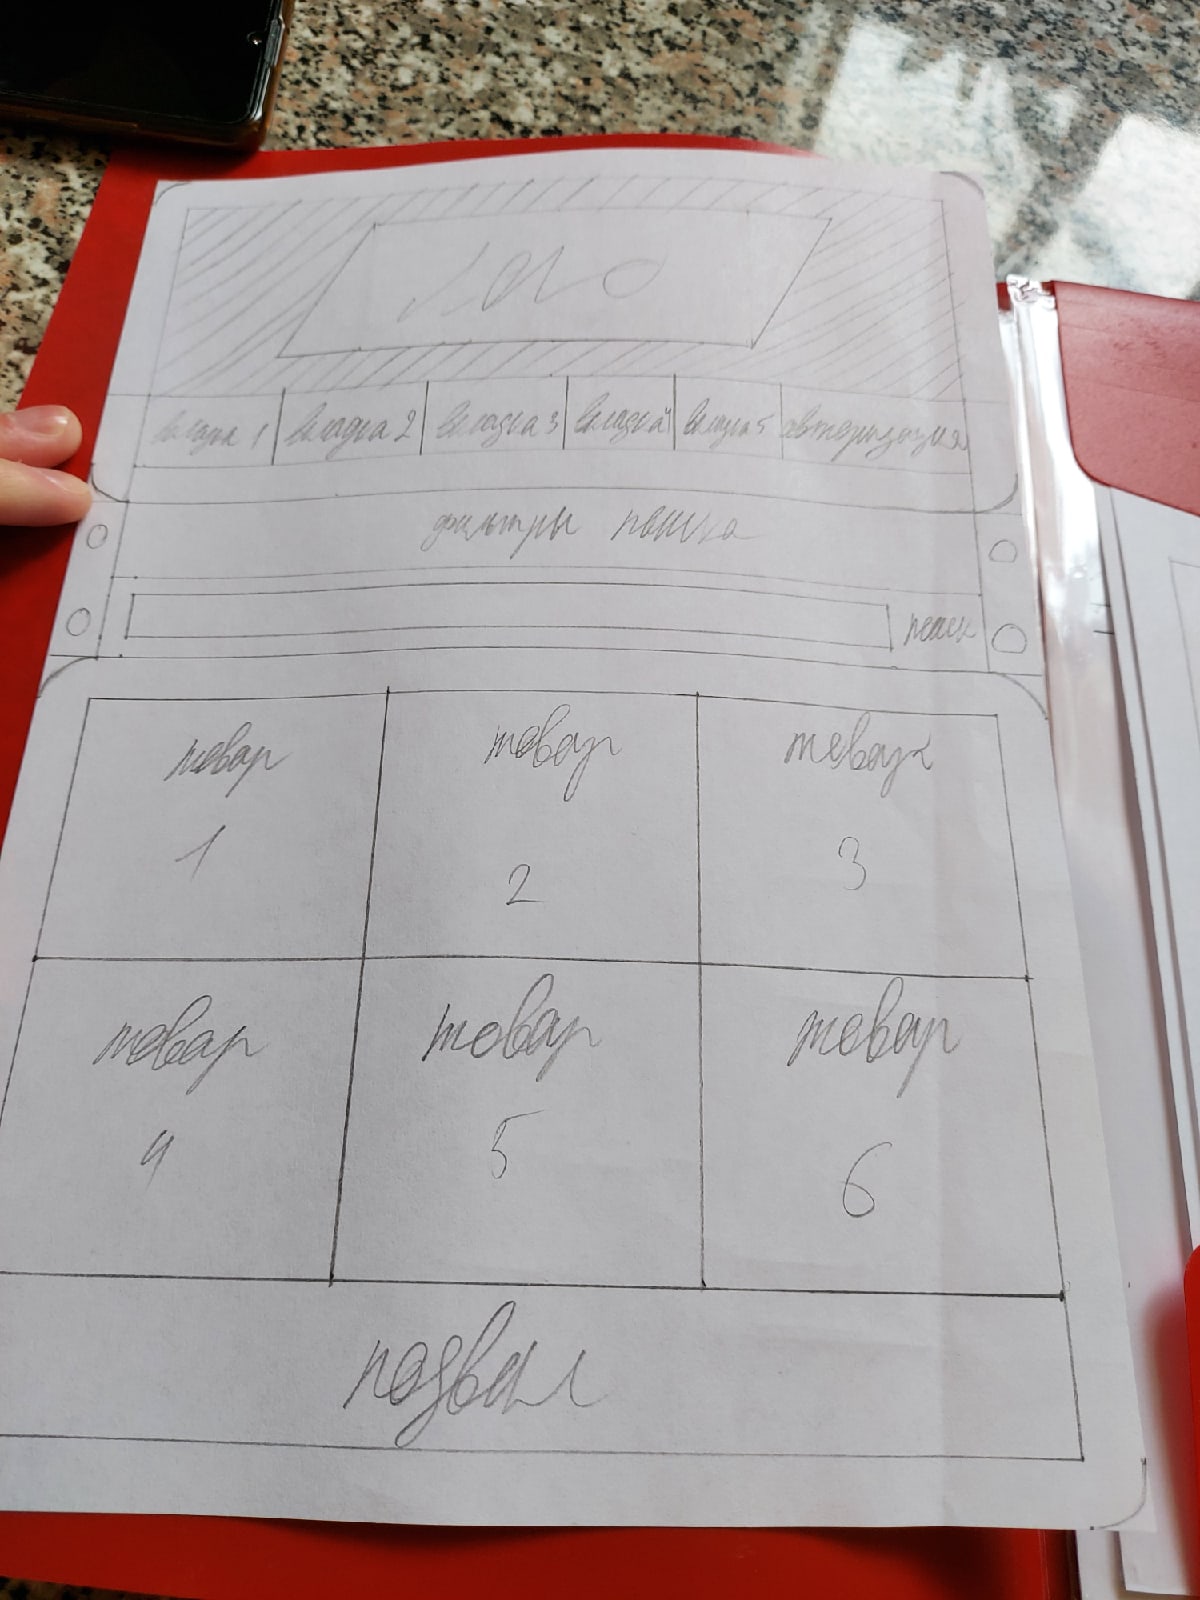 лого
вкладка 1 вкладка 2 вкладка 3 вкладка 4 вкладка 5 авторизация
фильтры поиска
поиск
товар товар товар
1 2 3
товар товар товар
4 5 6
подвал